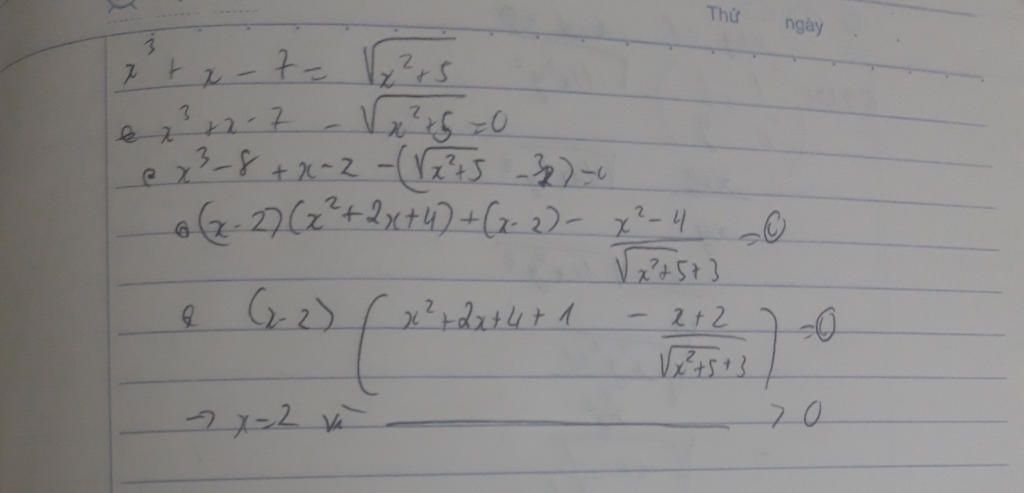 Thứ ngày
x³ + x - 7 = √(x²+5)
⇔ x³ + x - 7 - √(x²+5) = 0
⇔ x³ - 8 + x - 2 - (√(x²+5) - 3) = 0
⇔ (x-2)(x²+2x+4) + (x-2) - (x²-4)/(√(x²+5)+3) = 0
⇔ (x-2) (x²+2x+4+1 - (x+2)/(√(x²+5)+3)) = 0
→ x=2 vì ______ > 0